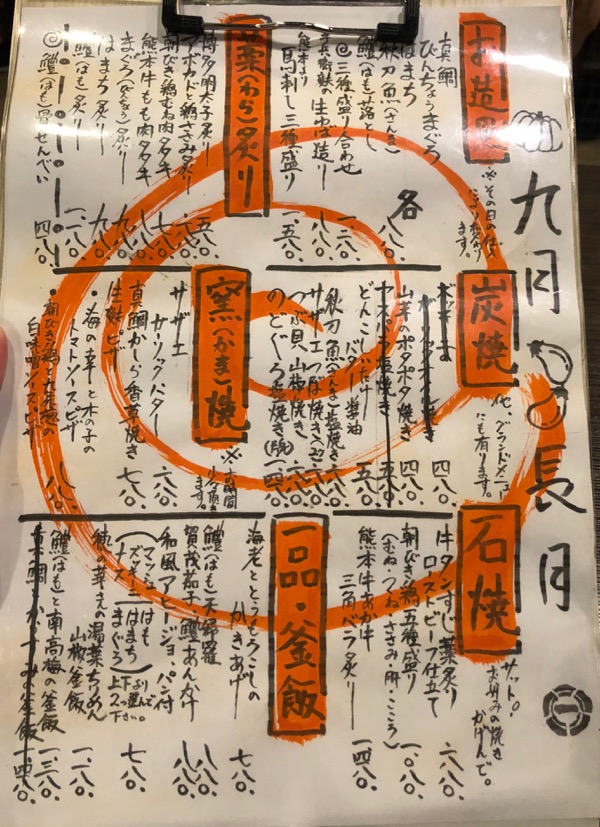 九月 長月
お造り
※その日の仕入
により変わり
ます。
真鯛
びんちょうまぐろ
はまち
秋刀魚(さんま)
鱧(はも)落とし
各 八八〇.
◎三種盛り合わせ
一.三八〇.
生ゆば造り
八八〇.
熊本より
馬刺し三種盛り
一.五八〇.
藁(わら)炙り
博多明太子炙り
五八〇.
アボカドと鶏ささみ炙り
朝びき鶏むね肉タタキ
七八〇.
熊本牛もも肉タタキ
まぐろ(びんちょう)炙り
九八〇.
はまち炙り
九八〇.
鱧(はも)炙り
一.一八〇.
◎鱧(はも)骨せんべい
四八〇.
炭焼
他、グランドメニュー
にも有ります。
四八〇.
山芋のポタポタ焼き
四八〇.
アスパラ塩焼き
どんこしいたけ
バター醤油
五八〇.
秋刀魚(さんま)塩焼き
サザエつぼ焼き
つぶ貝山椒焼き
のどぐろ塩焼き
窯(かま)焼
※お時間
少々頂き
ます。
サザエ
ガーリックバター
六八〇.
真鯛かしら香草焼き
七八〇.
生麩ピザ
・海の幸と木の子の
トマトソースピザ
・朝びき鶏と九条葱の
白味噌ソースピザ
八八〇.
石焼
サッと。
お好みの焼き
かげんで。
牛タンすじ藁炙り
ローストビーフ仕立て
六八〇.
朝びき鶏五種盛り
(むね・つくね・ささみ・肝・こころ)
一.〇八〇.
熊本牛あか牛
三角バラ炙り
一.四八〇.
一品・釜飯
海老ととうもろこしの
かきあげ
七八〇.
鱧(はも)天婦羅
一.一八〇.
賀茂茄子・鱧あんかけ
八八〇.
和風アヒージョ、パン付
マッシュ はも
ズッキーニ はまち
ナス まぐろ
上下より
一つ選んで
下さい。
七八〇.
湯葉ちりめん
山椒釜飯
一.一八〇.
鱧(はも)と南高梅の釜飯
一.三八〇.
真鯛とからすみの釜飯
一.四八〇.